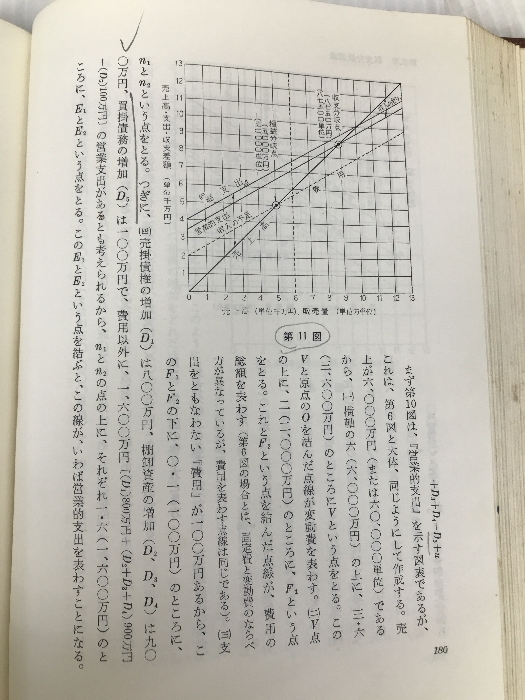 +D₁+D₂-D₅+n
まず第10図は、『営業的支出』を示す図表であるが、
これは、第6図と大体、同じようにして作成する。売
上が六、〇〇〇万円（または六〇、〇〇〇単位）である
から、㈠横軸の六（六、〇〇〇万円）の上に、三・六
（三、六〇〇万円）のところにVという点をとる。この
Vと原点のOを結んだ点線が変動費を表わす。㈡V点
の上に、二（二、〇〇〇万円）のところに、F₁という点
をとる。これとF₂という点を結んだ点線が、費用の
総額を表わす（第6図の場合とは、固定費と変動費のならべ
方が異なっているが、費用を表わす点線は同じである）。㈢支
出をともなわない『費用』が一〇〇万円あるから、こ
のF₁とF₂の下に、〇・一（一〇〇万円）のところに、
n₁とn₂という点をとる。つぎに、㈣売掛債権の増加（D₁）は八〇〇万円、棚卸資産の増加（D₂、D₃、D₄）は九〇
〇万円、買掛債務の増加（D₅）は一〇〇万円で、費用以外に、一、六〇〇万円［（D₁）800万円＋（D₂＋D₃＋D₄）900万円
－（D₅）100万円］の営業支出があるとも考えられるから、n₁とn₂の点の上に、それぞれ一・六（一、六〇〇万円）のと
ころに、E₁とE₂という点をとる。このE₁とE₂という点を結ぶと、この線が、いわば営業的支出を表わすことになる。
売上高・支出・収支差額（単位千万円）
13
12
11
10
9
8
7
6
5
4
3
2
1
0
0 1 2 3 4 5 6 7 8 9 10 11 12 13
収支分岐点
損益分岐点
総支出
営業的支出
費用
売上高
売上高（単位千万円）、販売量（単位万単位）
第11図
180